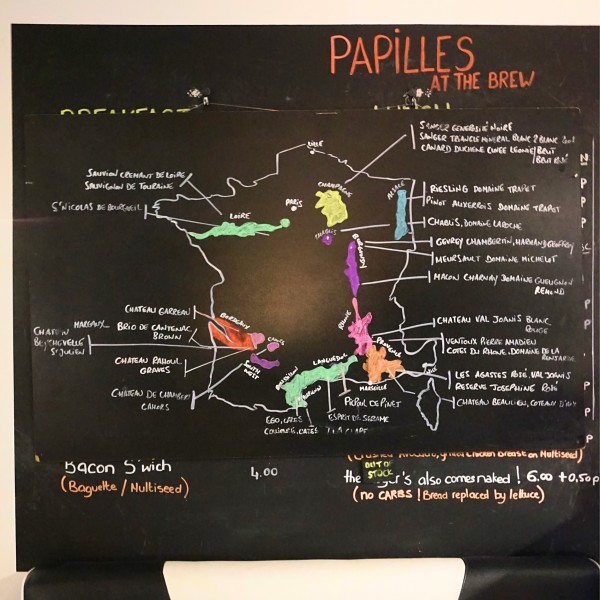 PAPILLES
AT THE BREW
BREAKFAST
SANGER GENEROSITÉ NOIRE
SANGER TRIANGLE MINERAL BLANC 2 BLANC
CANARD DUCHENE CUVEE LEONIE/BRUT
LILLE
SAUVION CREMANT DE LOIRE
SAUVIGNON DE TOURAINE
ST NICOLAS DE BOURGUEIL
LOIRE
PARIS
CHAMPAGNE
ALSACE
CHABLIS
RIESLING DOMAINE TRAPET
PINOT AUXERROIS DOMAINE TRAPET
CHABLIS, DOMAINE LAROCHE
GEVREY CHAMBERTIN, HARMAND GEOFFROY
MEURSAULT DOMAINE MICHELOT
MACON CHARNAY DOMAINE GUEUGNON
REMOND
CHATEAU GARREAU
MARGAUX
BRIO DE CANTENAC
BROWN
CHATEAU
BEYCHEVELLE
ST JULIEN
CHATEAU RAHOUL
GRAVES
CHATEAU DE CHAMBERT
CAHORS
BORDEAUX
SOUTH
WEST
RHONE
PROVENCE
LANGUEDOC
ROUSSILLON
MARSEILLE
NICE
CHATEAU VAL JOANIS BLANC
ROUGE
VENTOUX PIERRE AMADIEU
COTES DU RHONE, DOMAINE DE LA
LES AGASSES ROSÉ, VAL JOANIS
RESERVE JOSEPHINE ROSÉ
CHATEAU BEAULIEU, COTEAUX D'AIX
PICPOUL DE PINET
ESPRIT DE SESAME
LA CLAPE
Bacon S'wich
4.00
(Baguette / Multiseed)
Chicken Breast on Multiseed)
OUT OF
STOCK
the 's also comes naked ! 6.00 + 0.50p
(no CARBS | Bread replaced by lettuce)